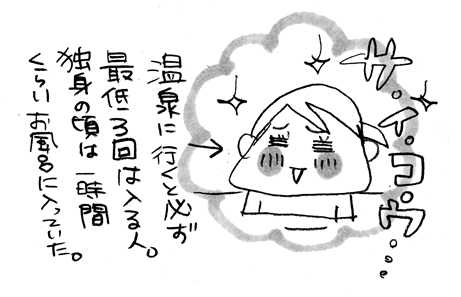 サ・イ・コ・ウ…。
温泉に行くと必ず
最低3回は入る人。
独身の頃は一時間
くらいお風呂に入っていた。